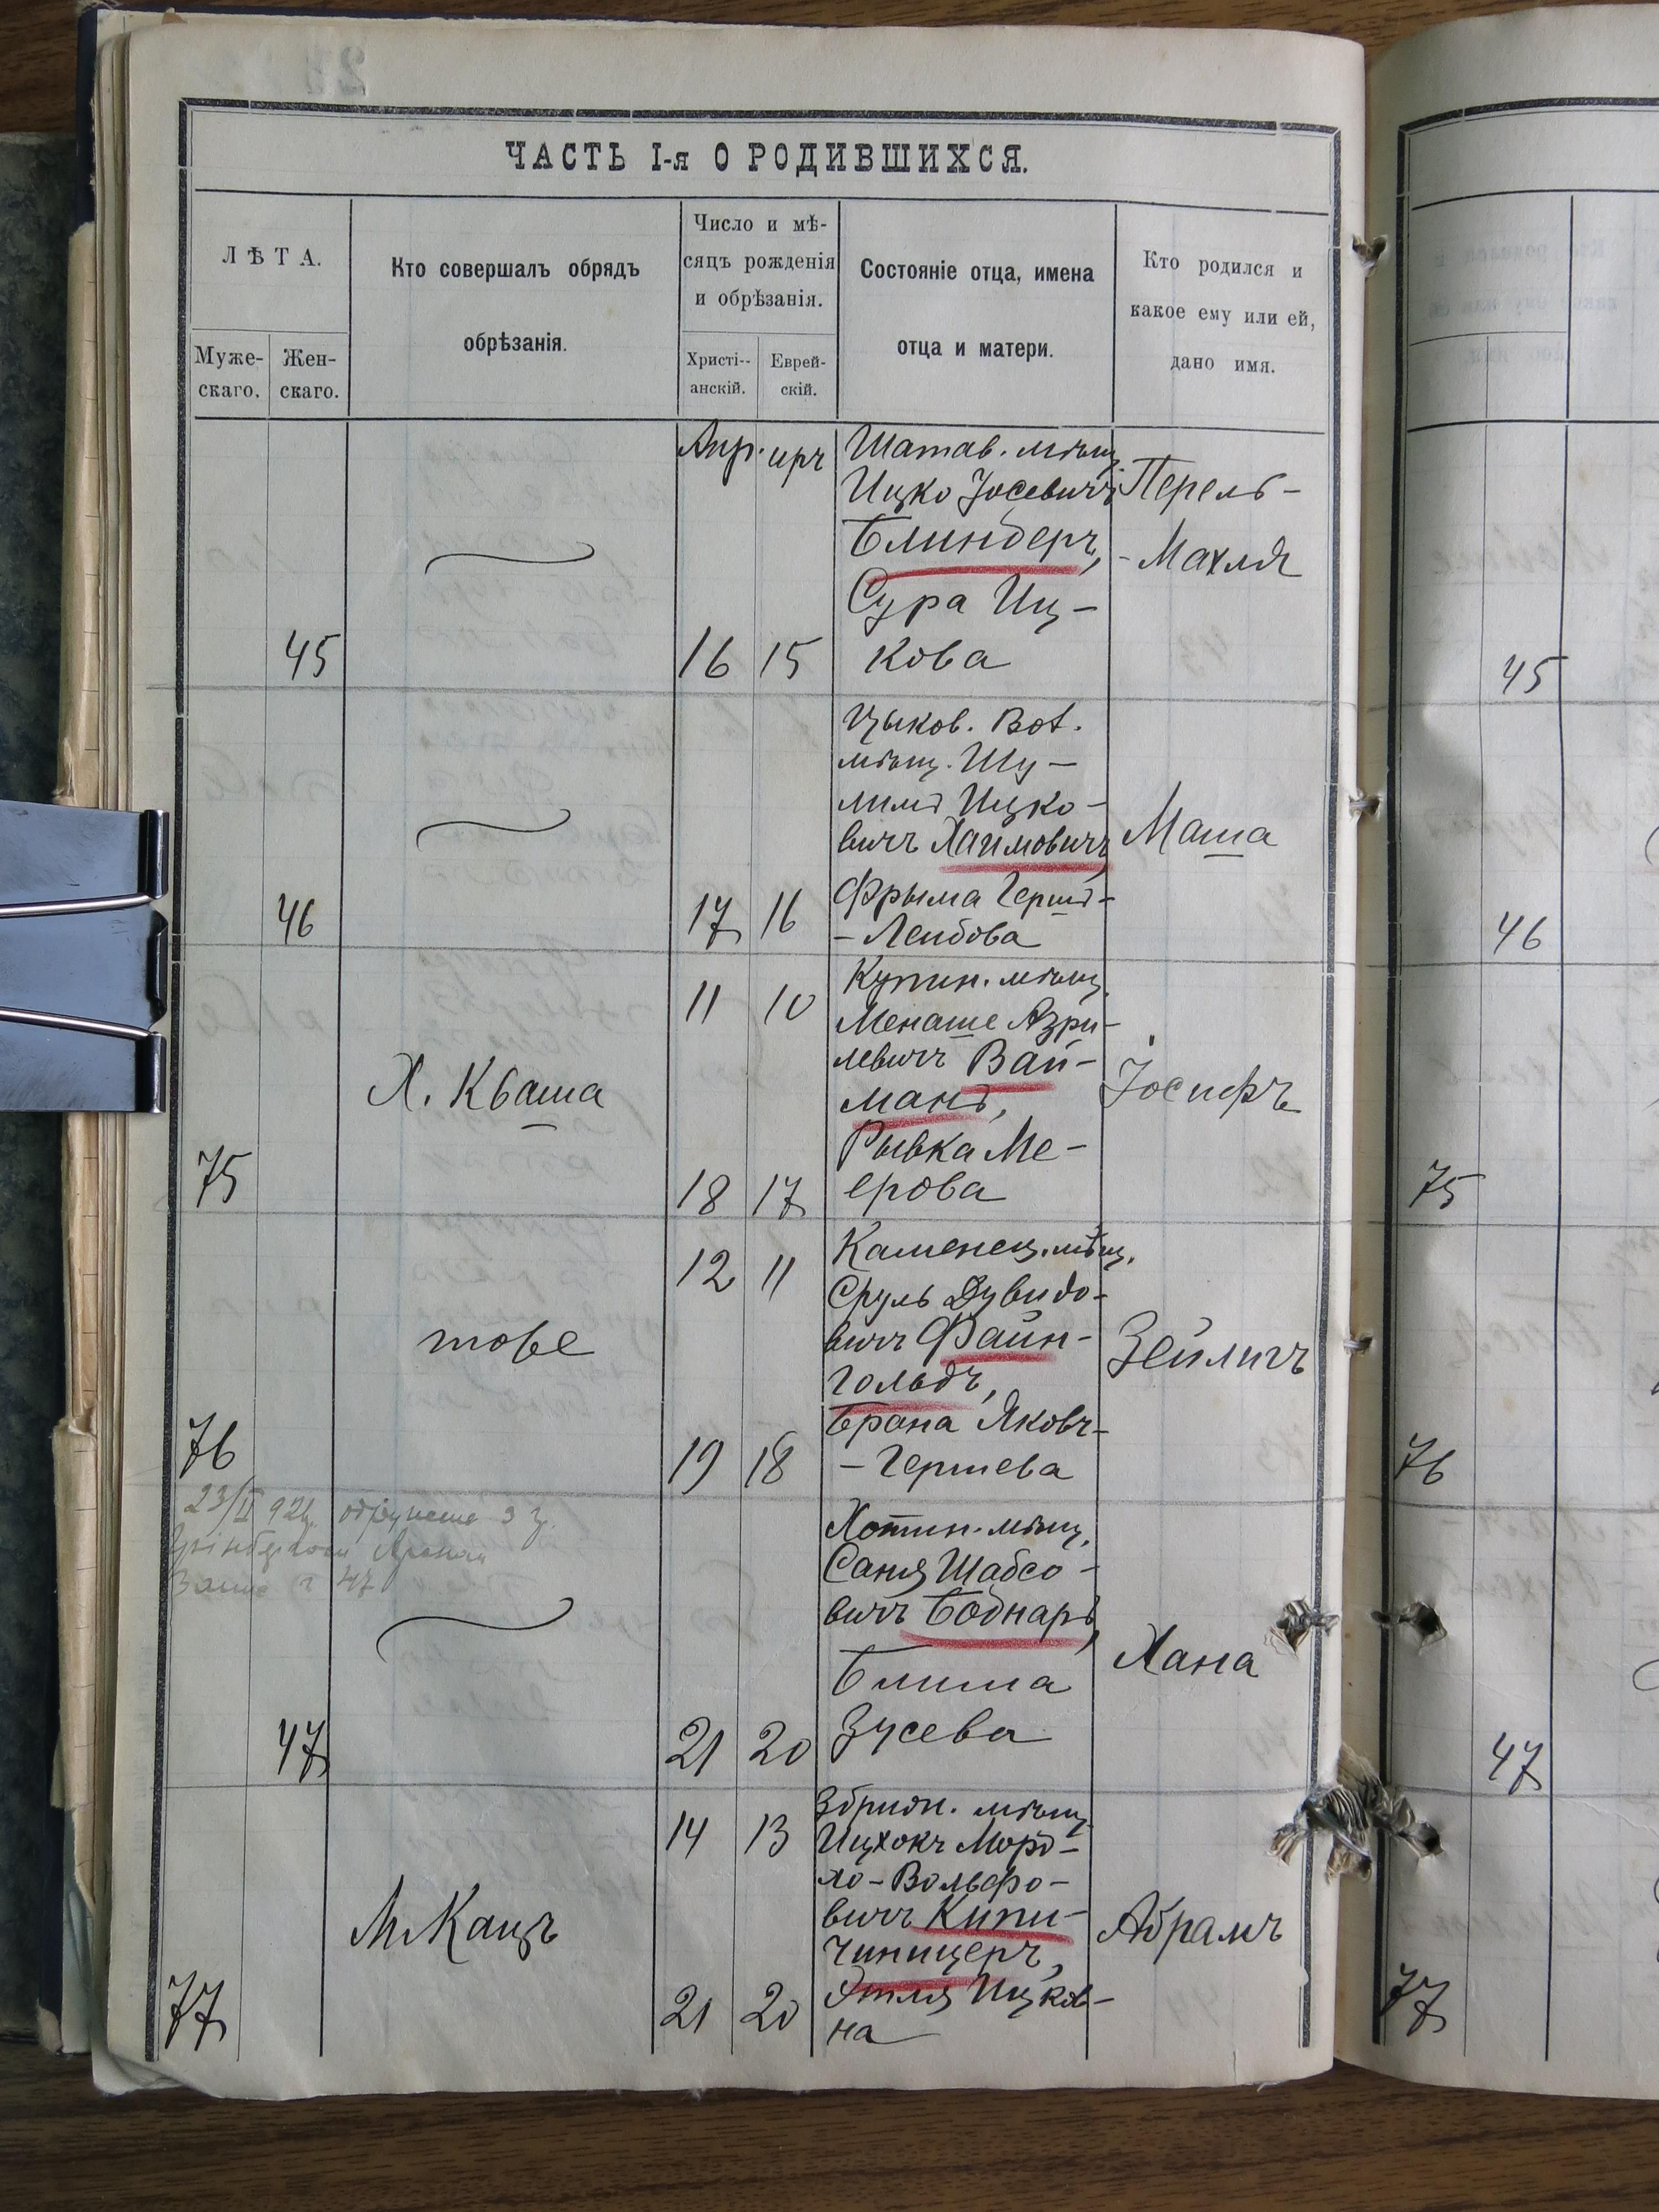 ЧАСТЬ I-я О РОДИВШИХСЯ.
ЛѢТА.
Муже-
скаго.
Жен-
скаго.
Кто совершалъ обрядъ
обрѣзанія.
Число и мѣ-
сяцъ рожденія
и обрѣзанія.
Христі--
анскій.
Еврей-
скій.
Состояніе отца, имена
отца и матери.
Кто родился и
какое ему или ей,
дано имя.
Апр. иръ
45
16 15
Шатав. мѣщ.
Ицко Іосевичъ
Блиндеръ,
Сура Иц-
кова
Перель-
-Махля
46
17 16
Цыков. Вол.
мѣщ. Шу-
лимъ Ицко-
вичъ Хаимовичъ,
Фрыма Гершъ-
-Лейбова
Маша
75
Х. Кваша
11 10
18 17
Купин. мѣщ.
Менаше Азри-
левичъ Вай-
манъ,
Рывка Ме-
ерова
Іосифъ
76
тоже
12 11
19 18
Каменец. мѣщ.
Сруль Дувидо-
вичъ Файн-
гольдъ,
Брана Яковъ-
-Гершева
Зейлигъ
23/II 92
47
21 20
Хотин. мѣщ.
Саня Шабсо-
вичъ Боднаръ,
Блима
Зусева
Хана
77
М Кацъ
14 13
21 20
Збриж. мѣщ.
Ицхокъ Мордъ-
хо-Вольфо-
вичъ Кипи-
чницеръ,
Этля Ицков-
на
Абрамъ
45
46
75
76
47
77